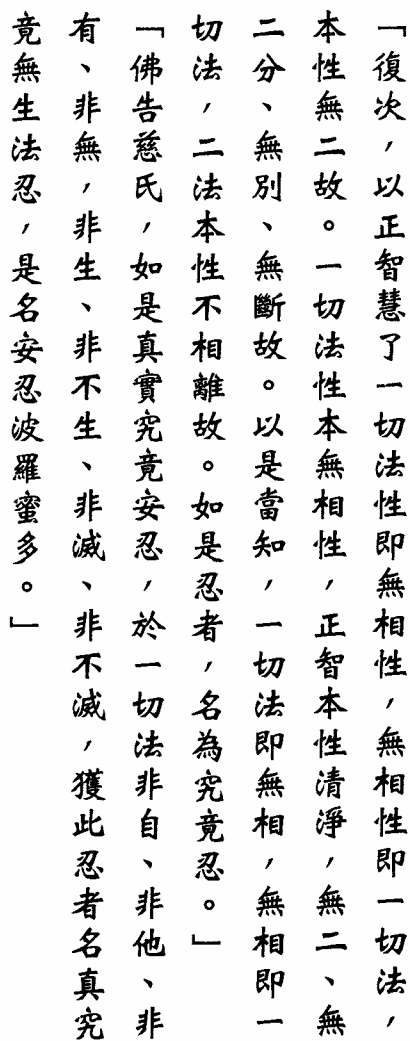 「復次，以正智慧了一切法性即無相性，無相性即一切法，
本性無二故。一切法性本無相性，正智本性清淨，無二、無
二分、無別、無斷故。以是當知，一切法即無相，無相即一
切法，二法本性不相離故。如是忍者，名為究竟忍。」
「佛告慈氏，如是真實究竟安忍，於一切法非自、非他、非
有、非無，非生、非不生、非滅、非不滅，獲此忍者名真究
竟無生法忍，是名安忍波羅蜜多。」